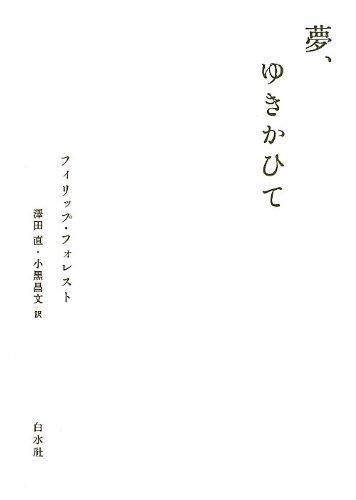 夢、
ゆきかひて
フィリップ・フォレスト
澤田 直・小黒昌文 訳
白水社